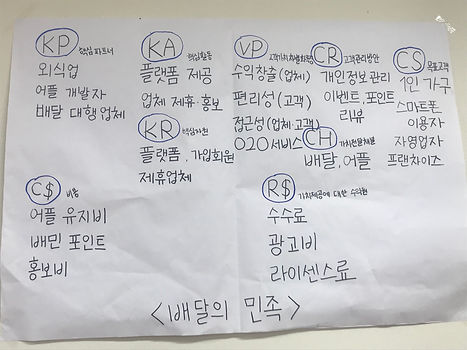 KP 핵심파트너
외식업
어플 개발자
배달 대행 업체
KA 핵심활동
플랫폼 제공
업체 제휴·홍보
KR 핵심자원
플랫폼, 가입회원
제휴업체
VP
수익창출(업체)
편리성(고객)
접근성(업체·고객)
O2O서비스
CR 고객관리방안
개인정보관리
이벤트, 포인트
리뷰
CH
배달, 어플
CS 목표고객
1인 가구
스마트폰
이용자
자영업자
프랜차이즈
C$ 비용
어플 유지비
배민 포인트
홍보비
R$ 가치제공에 대한 수익원
수수료
광고비
라이센스료
<배달의 민족>